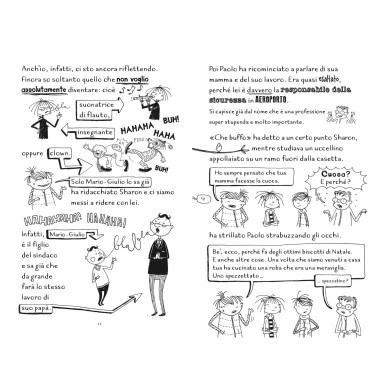 Anch'io, infatti, ci sto ancora riflettendo.
Finora so soltanto quello che non voglio
assolutamente diventare: cioè
suonatrice
di flauto,
BUH!
insegnante
HAHAHA
HAHA
BUH!
oppure clown.
Solo Mario-Giulio lo sa già
ha ridacchiato Sharon e ci siamo
messi a ridere con lei.
HAHAHAHAHA HAHAHA!
Infatti, Mario-Giulio
è il figlio
del sindaco
e sa già che
da grande
farà lo stesso
lavoro di
suo papà.
blabla
11
Poi Paolo ha ricominciato a parlare di sua
mamma e del suo lavoro. Era quasi esaltato,
perché lei è davvero la responsabile della
sicurezza in AEROPORTO.
Si capisce già dal nome che è una professione
super stupenda e molto importante.
«Che buffo» ha detto a un certo punto Sharon,
mentre studiava un uccellino
appollaiato su un ramo fuori dalla casetta.
Ho sempre pensato che tua
mamma facesse la cuoca.
Cuoca?
E perché?
ha strillato Paolo strabuzzando gli occhi.
Be', ecco, perché fa degli ottimi biscotti di Natale.
E anche altre cose. Una volta che siamo venuti a casa
tua ha cucinato una roba che era una meraviglia.
Uno spezzettato...
... spezzatino?